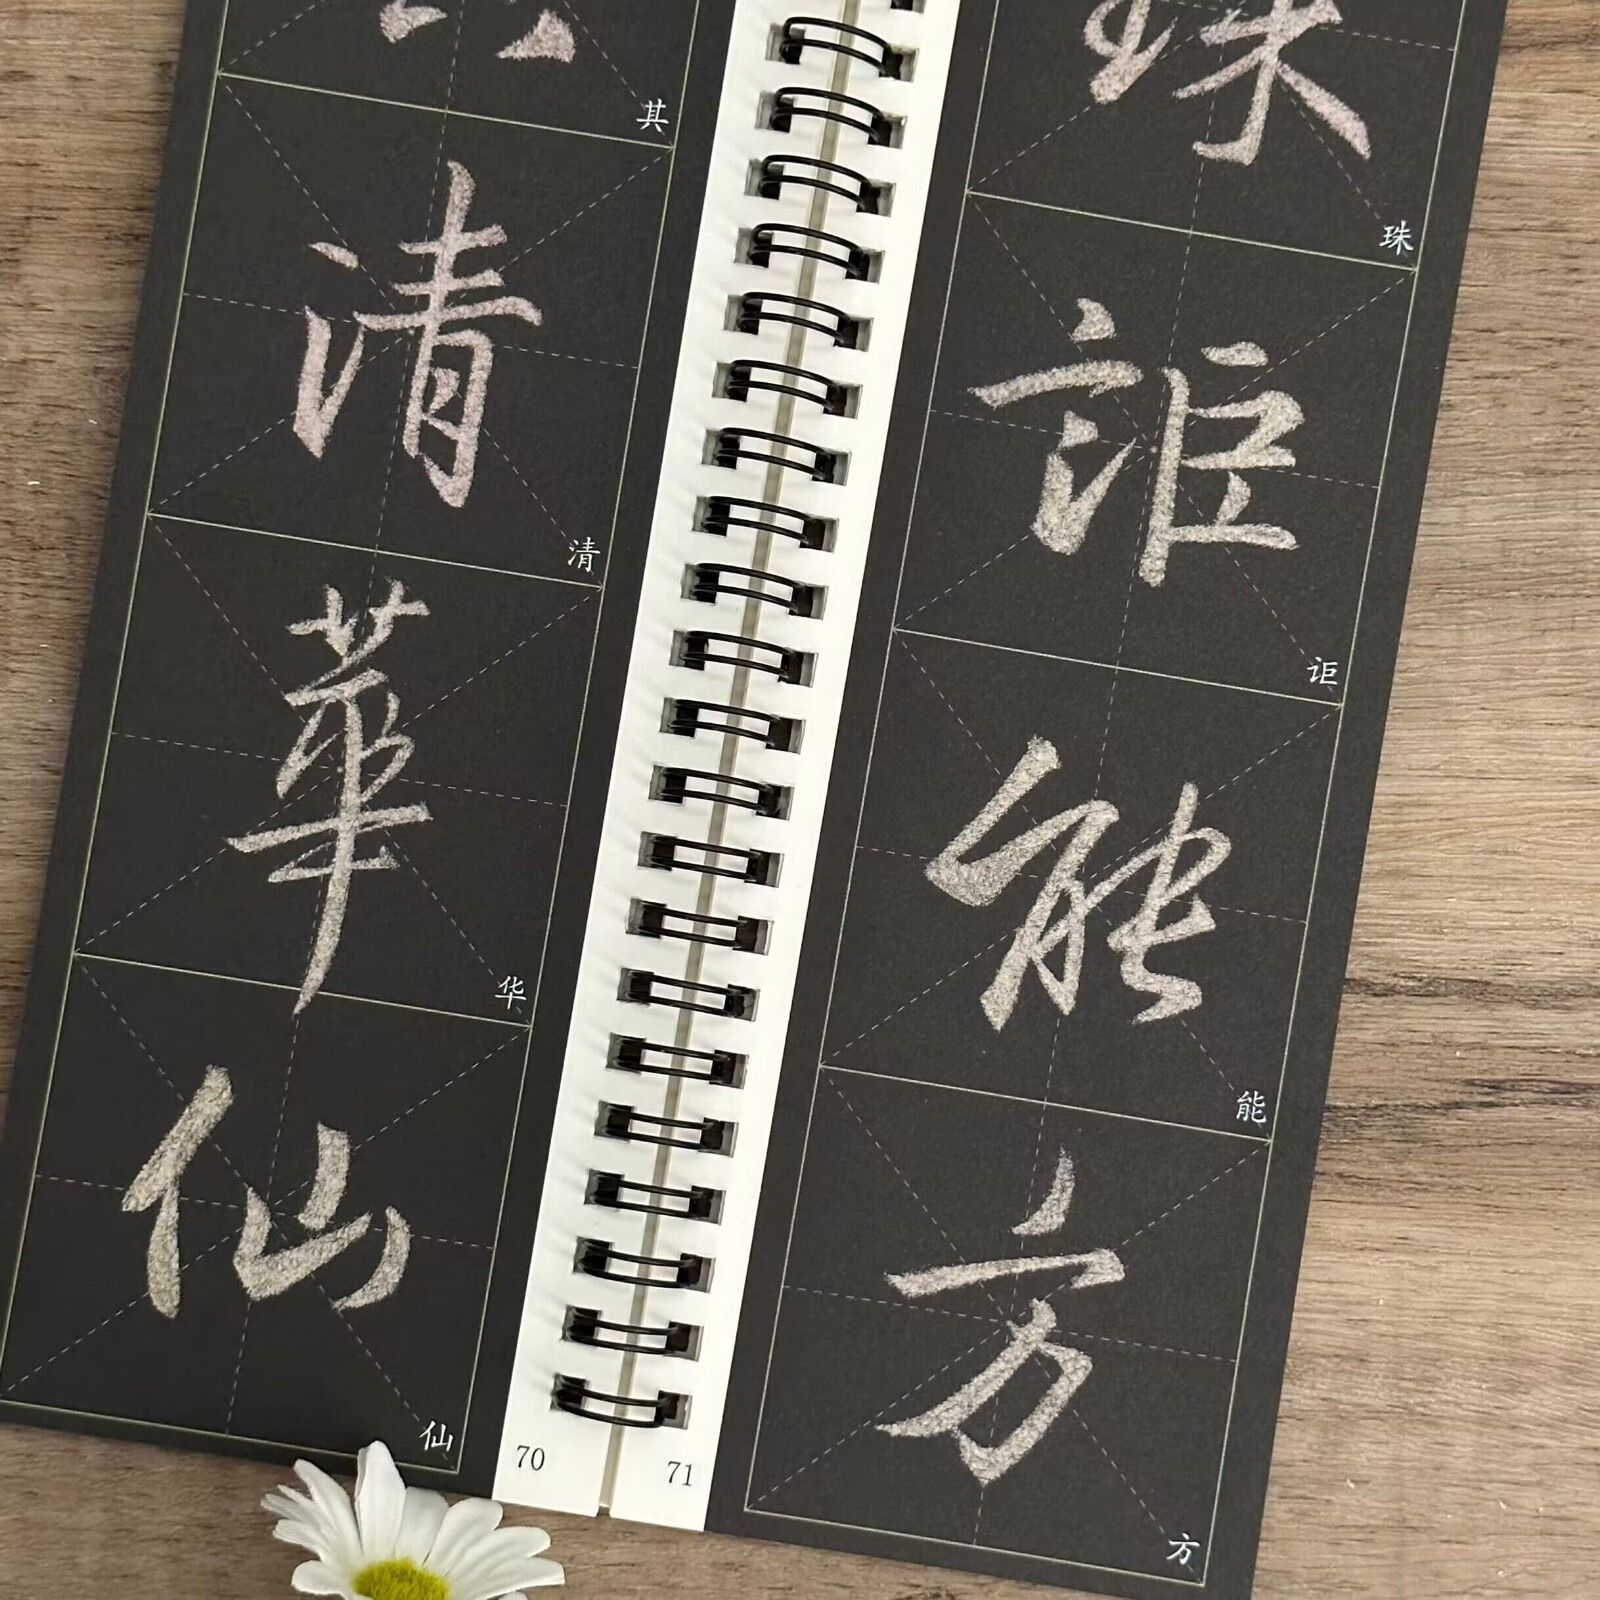 其
清
清
華
华
仙
仙
70
珠
珠
詎
讵
能
能
方
方
71